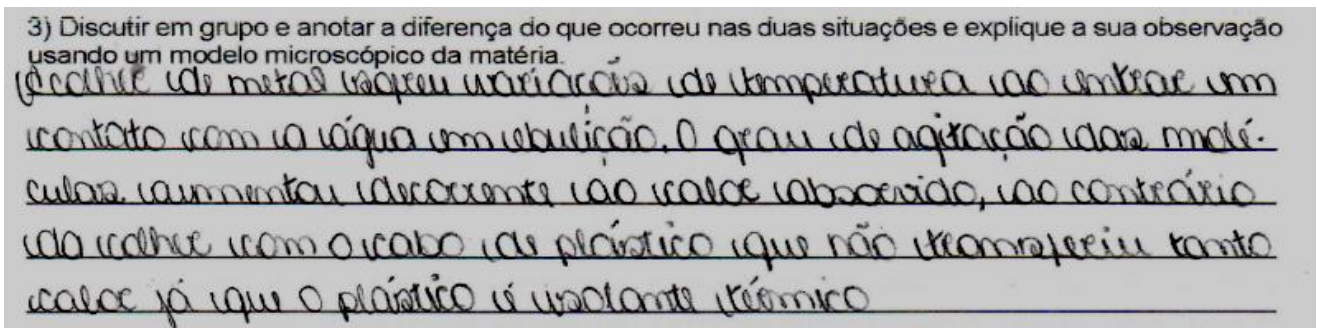 3) Discutir em grupo e anotar a diferença do que ocorreu nas duas situações e explique a sua observação
usando um modelo microscópico da matéria.
A colher de metal sofreu variações de temperatura ao entrar em
contato com a água em ebulição. O grau de agitação das molé-
culas aumentou decorrente ao calor absorvido, ao contrário
da colher com o cabo de plástico que não transferiu tanto
calor já que o plástico é isolante térmico